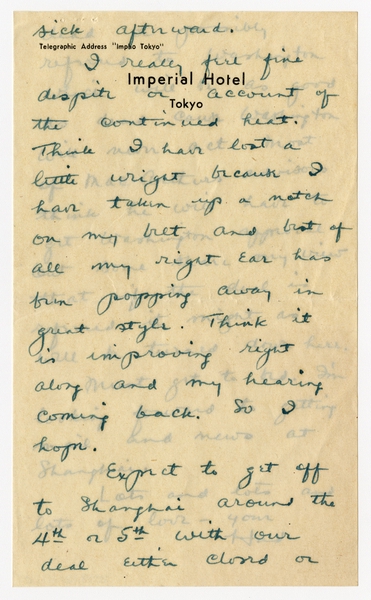 sick afterward.
Telegraphic Address "Impho Tokyo"
I really feel fine
Imperial Hotel
despite or account of
Tokyo
the continued heat.
Think I have lost a
little weight because I
have taken up a notch
on my belt and best of
all my right ear has
been popping away in
great style. Think it
is improving right
along and my hearing
coming back. So I
hope.
Expect to get off
to Shanghai around the
4th or 5th with our
deal either closed or